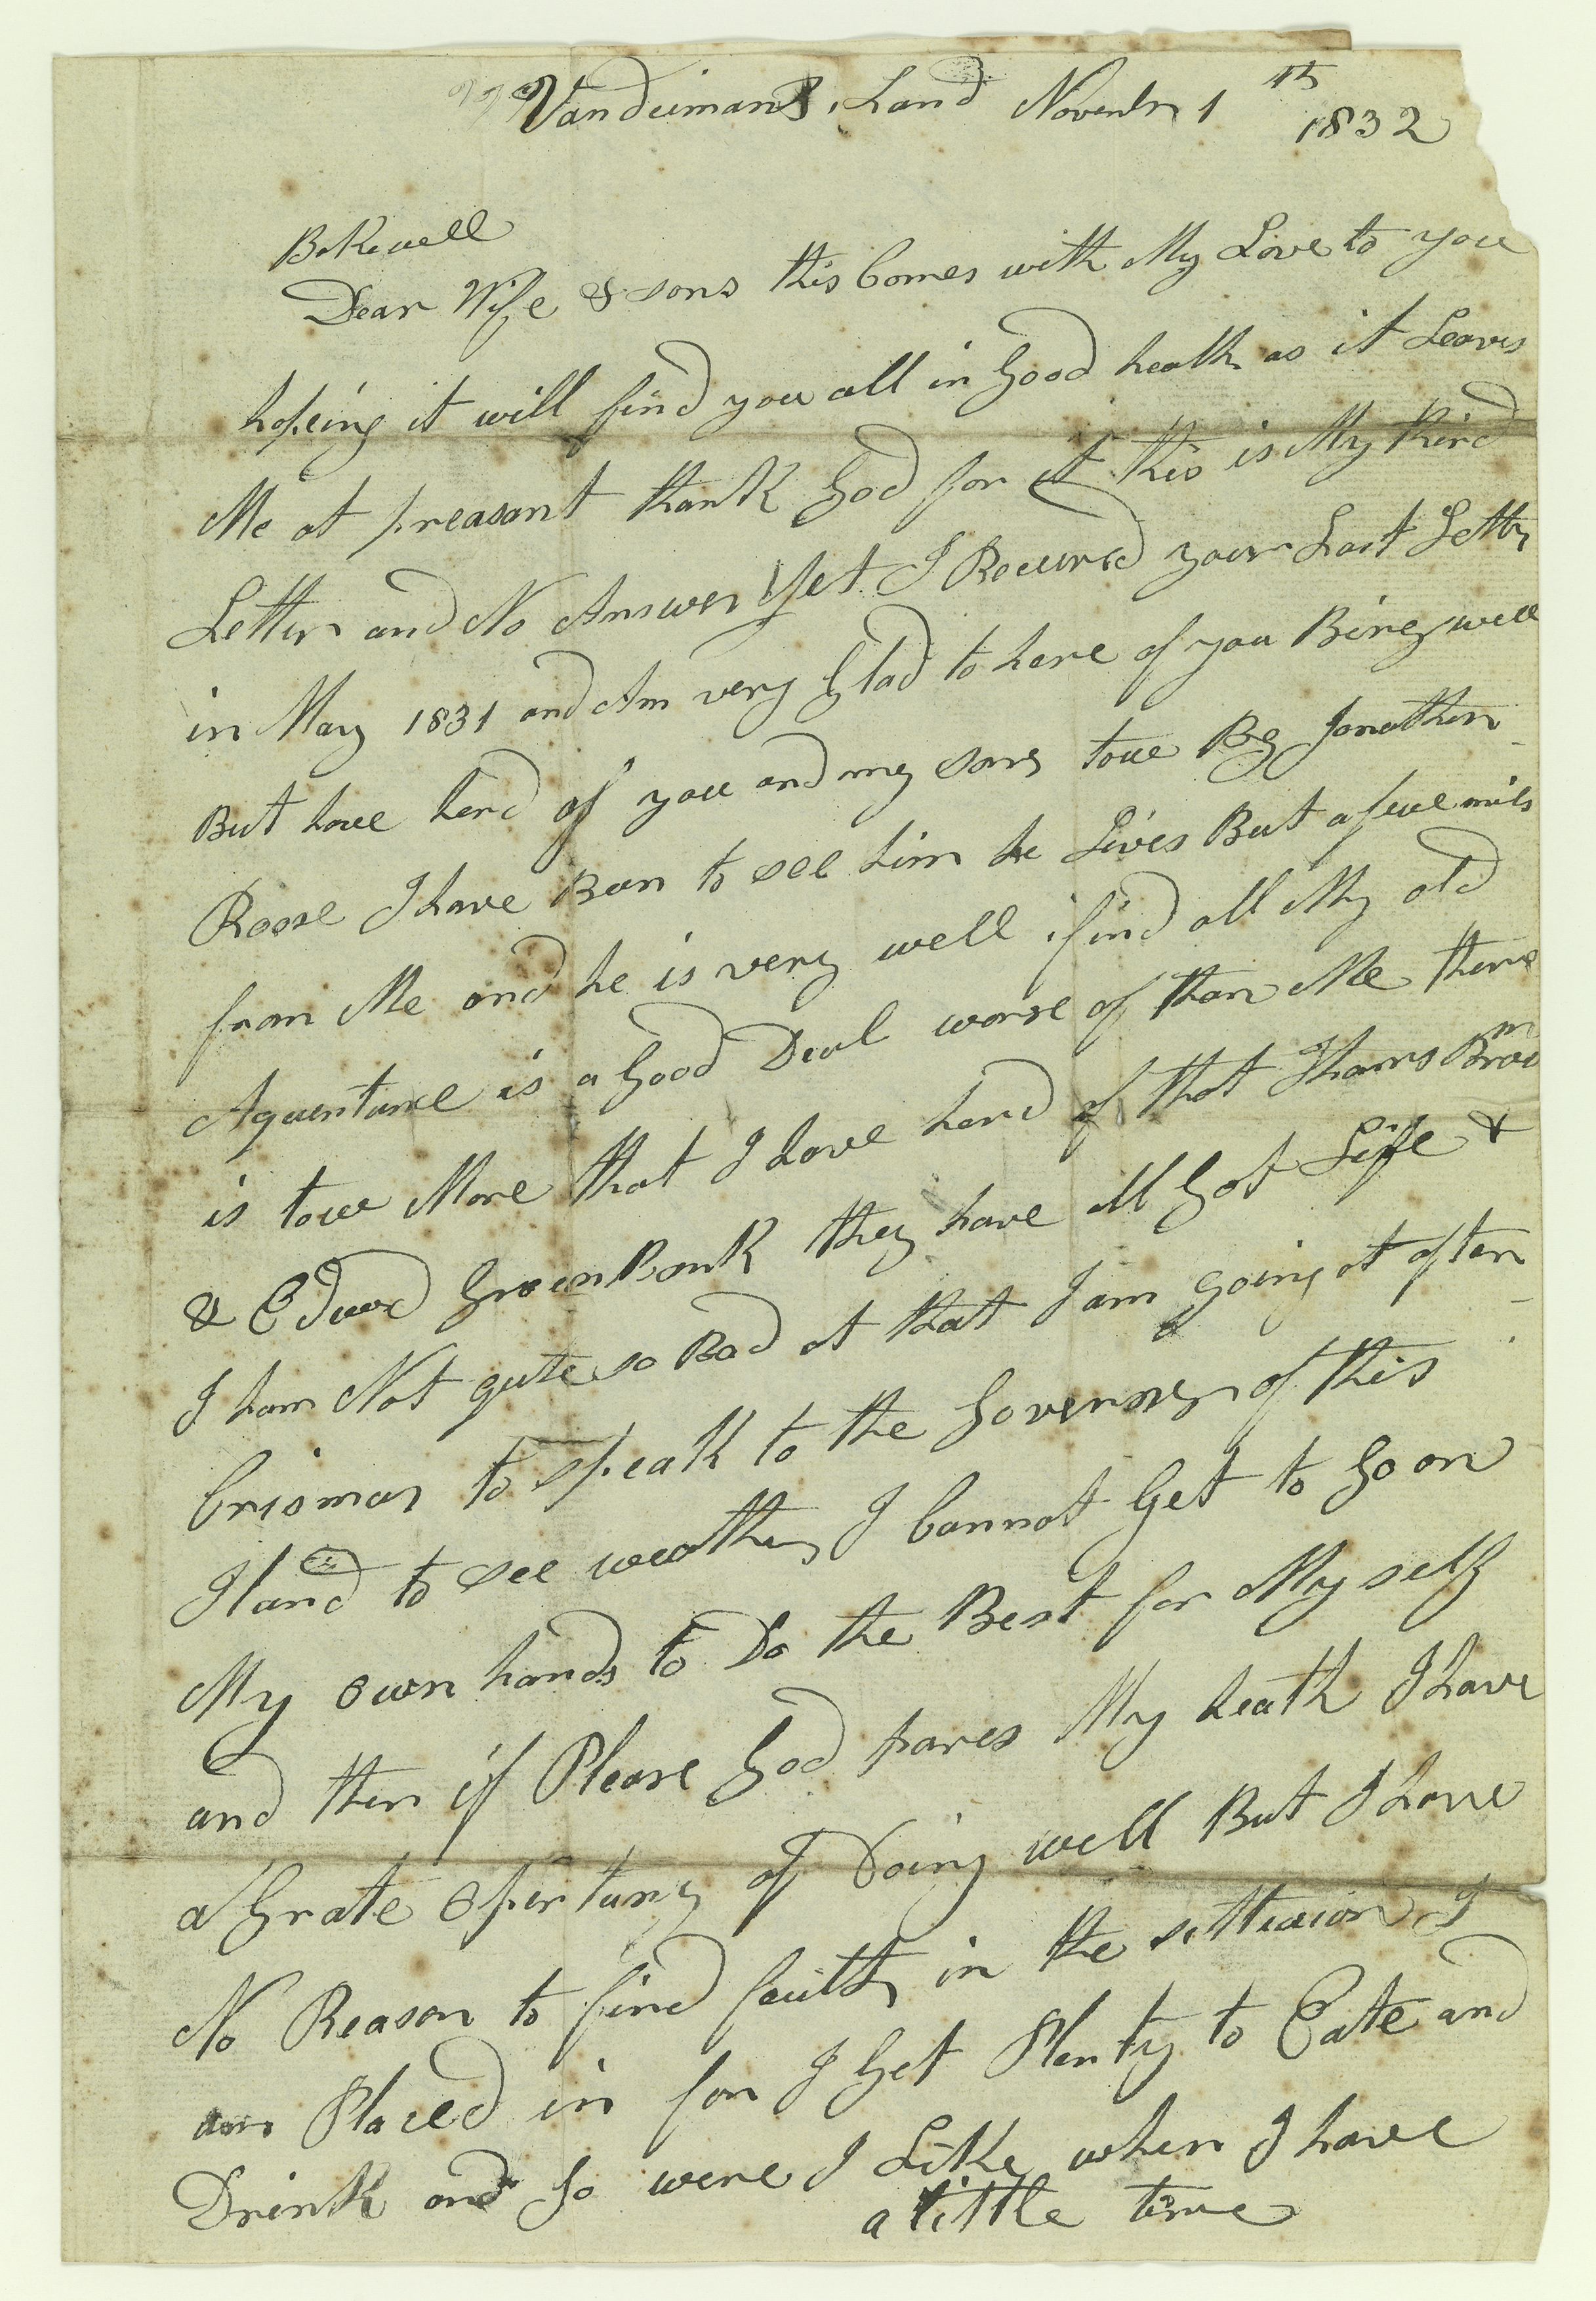 Vandeimans Land Novembr 1 th
1832
Bakewell
Dear Wife & sons this Comes with My Love to you
hopeing it will find you all in Good health as it Leaves
Me at preasant thank God for it this is My third
Letter and No Answer Yet I Receivd your Last Letter
in May 1831 and Am very Glad to here of you Being well
But have herd of you and my sons toue By Jonathen
Roose I have Been to see him he Lives But a fue mils
from Me and he is very well i find all My old
Aquentance is a Good Deal worse of than Me there
is toue More that I have herd of that Thams Brown
& Edwed GreenBank they have all Got Life &
I ham Not qute so Bad at that I am going at often
Crismas to speak to the Governer of this
Iland to see weather I Cannot Get to Go on
My own hands to Do the Best for My self
and then if Please God spares My heath I have
a Grate Opertuny of Doing well But I have
No Reason to find fault in the sittueion I
am Placed in for I Get Plenty to Eate and
Drink and Go were I Like when I have
a little time